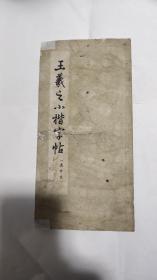 王羲之小楷字帖